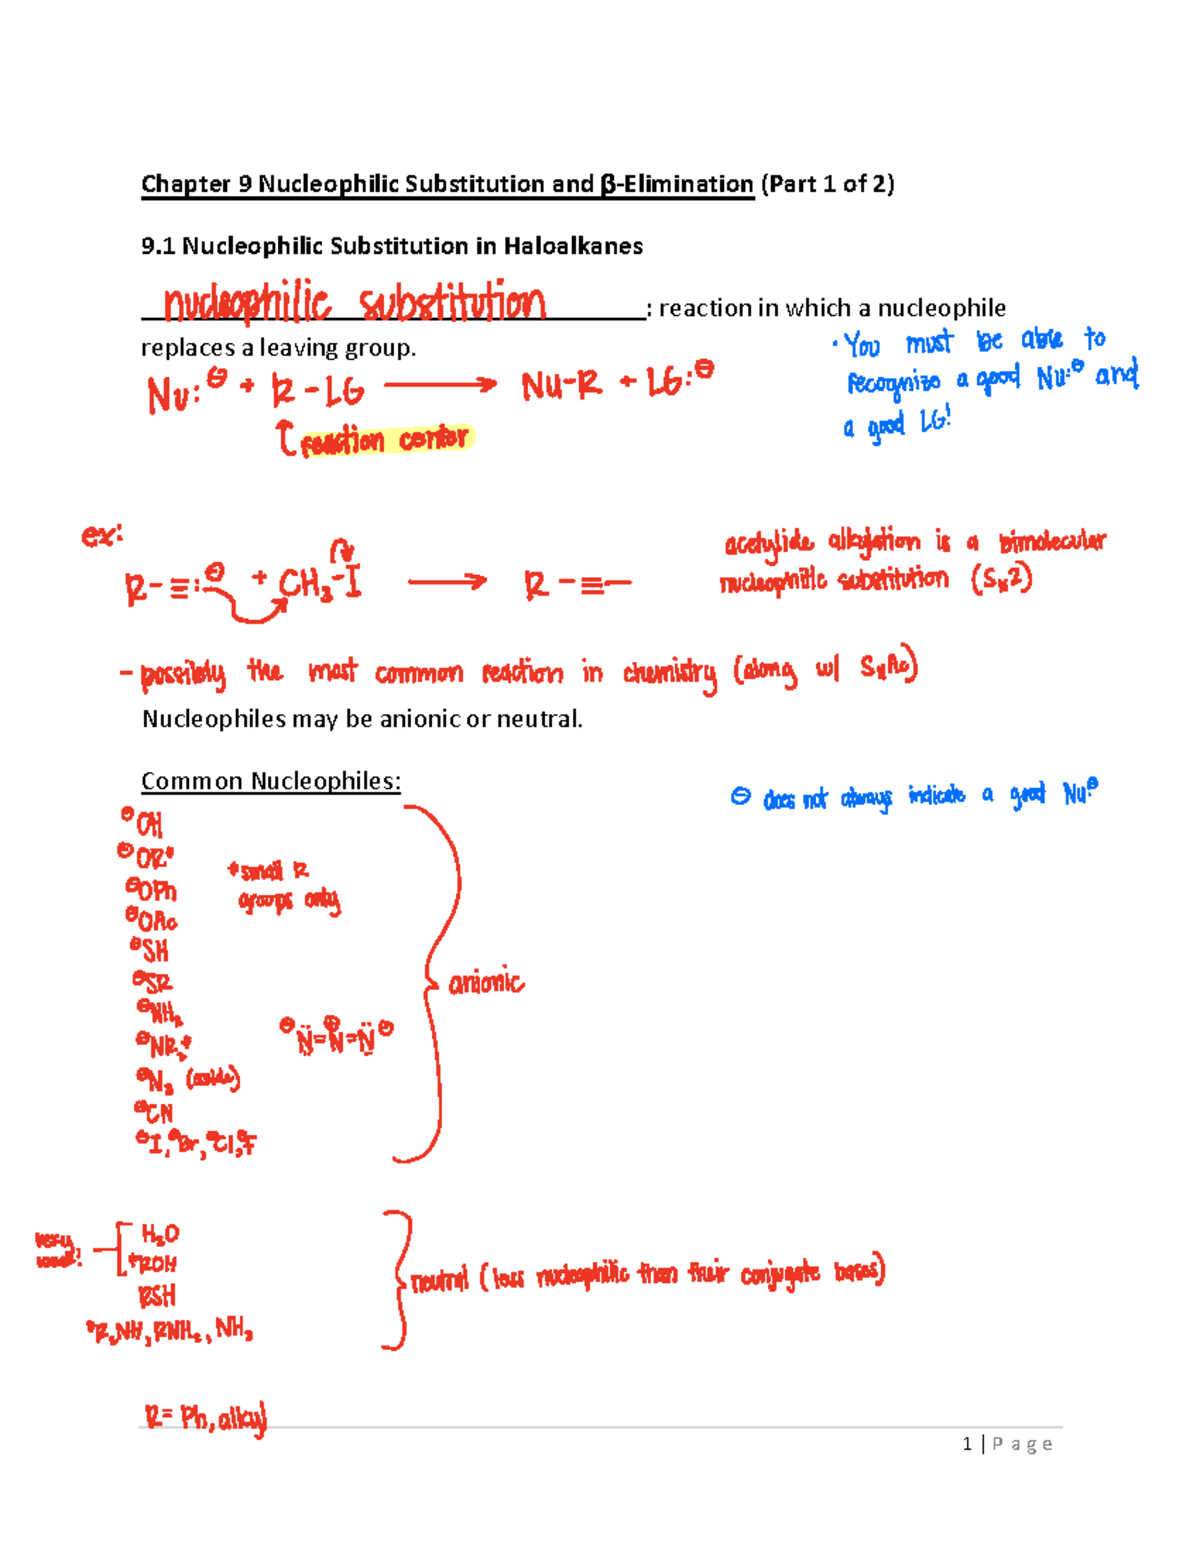 Chapter 9 Nucleophilic Substitution and β-Elimination (Part 1 of 2)
9.1 Nucleophilic Substitution in Haloalkanes
nucleophilic substitution : reaction in which a nucleophile
replaces a leaving group.
· You must be able to
recognize a good Nu:⊖ and
a good LG!
Nu:⊖ + R-LG → Nu-R + LG:⊖
↑ reaction center
ex:
R-≡:⊖ + CH₃-I → R-≡-
acetylide alkylation is a bimolecular
nucleophilic substitution (SN2)
- possibly the most common reaction in chemistry (along w/ SNAc)
Nucleophiles may be anionic or neutral.
Common Nucleophiles:
⊖ does not always indicate a good Nu:⊖
⊖OH
⊖OR*
*small R
groups only
⊖OPh
⊖OAc
⊖SH
⊖SR
anionic
⊖NH₂
⊖NR₂*
⊖N̈=N⊕=N̈⊖
⊖N₃ (azide)
⊖CN
⊖I, ⊖Br, ⊖Cl, ⊖F
very
weak!
H₂O
*ROH
RSH
*R₂NH, RNH₂, NH₃
neutral (less nucleophilic than their conjugate bases)
R= Ph, alkyl
1 | Page